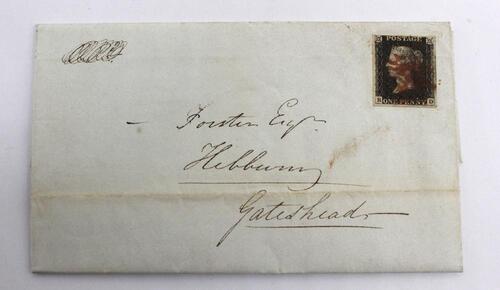 POSTAGE
ONE PENNY
D
– Forster Esqr
Hebburn
Gateshead